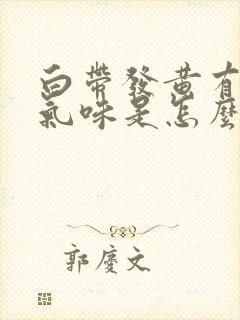 白帶發黃有
氣味是怎麼
郭慶文